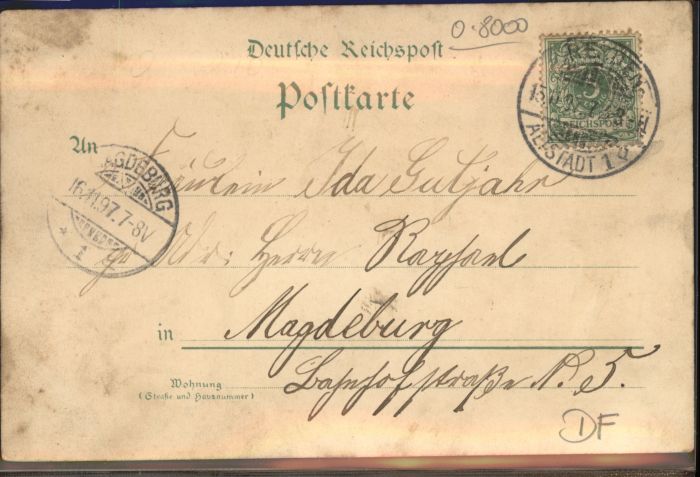 O-8000
Deutsche Reichspost
Postkarte
REICHSPOST
ALTSTADT 1
An
Fräulein Ida Gutjahr
MAGDEBURG
16.11.97. 7-8V
1
Adr: Herrn Raphael
in Magdeburg
Wohnung
(Straße und Hausnummer)
Bahnhofstraße N. 5.
DF